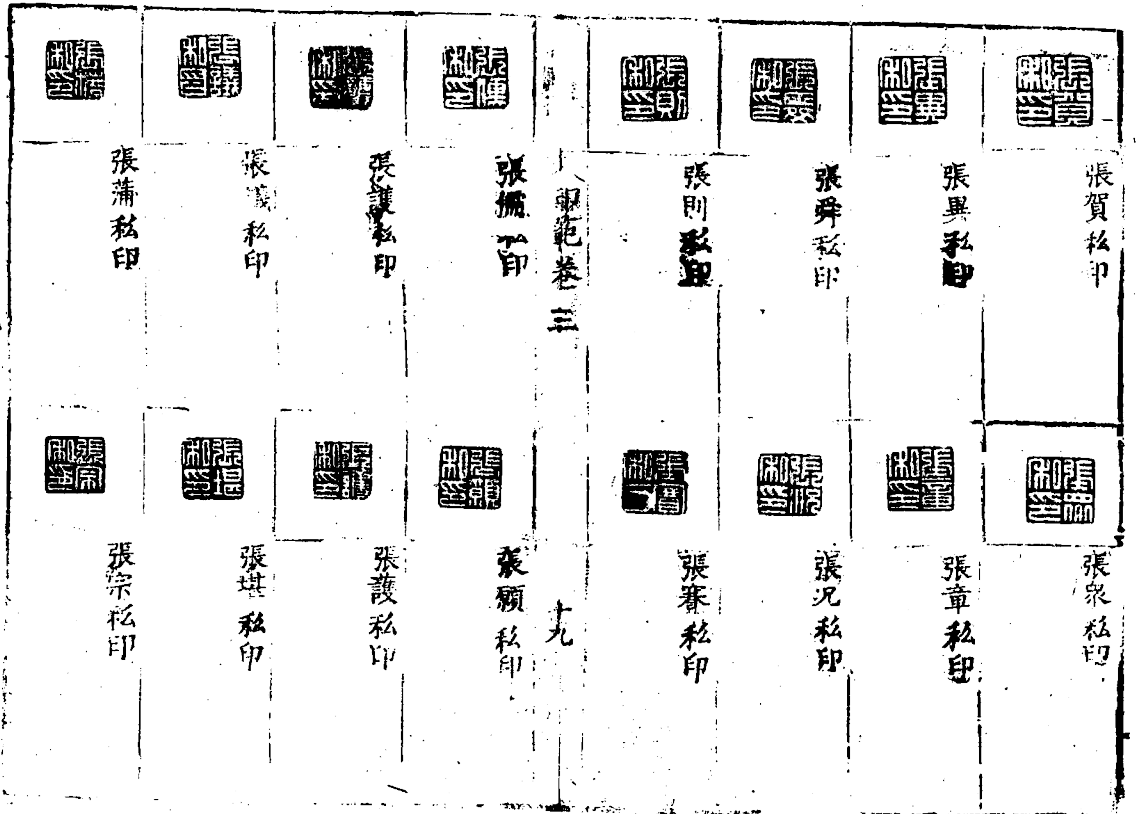 張賀私印
張異私印
張舜私印
張則私印
張眾私印
張章私印
張況私印
張賽私印
印範卷三
十九
張儒私印
張護私印
張議私印
張蒲私印
張願私印
張護私印
張堪私印
張宗私印